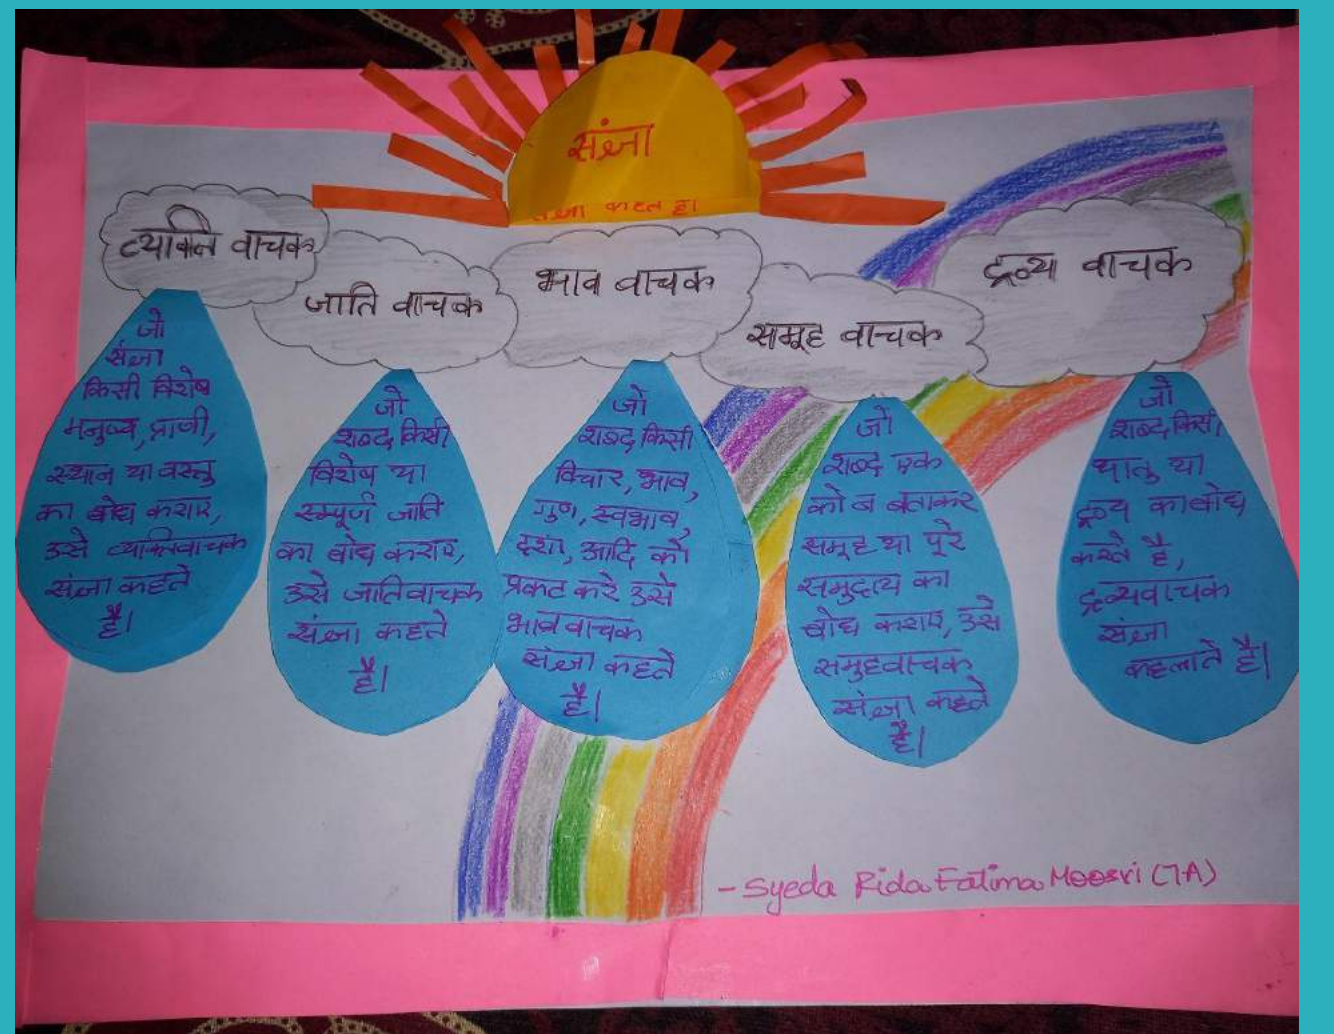 संज्ञा
संज्ञा कहते है।
व्यक्ति वाचक
जाति वाचक
भाव वाचक
समूह वाचक
द्रव्य वाचक
जो
संज्ञा
किसी विशेष
मनुष्य, प्राणी,
स्थान या वस्तु
का बोध कराए,
उसे व्यक्तिवाचक
संज्ञा कहते
है।
जो
शब्द किसी
विशेष या
सम्पूर्ण जाति
का बोध कराए,
उसे जातिवाचक
संज्ञा कहते
है।
जो
शब्द किसी
विचार, भाव,
गुण, स्वभाव,
दशा, आदि को
प्रकट करे उसे
भाव वाचक
संज्ञा कहते
है।
जो
शब्द एक
को न बताकर
समूह या पूरे
समुदाय का
बोध कराए, उसे
समुहवाचक
संज्ञा कहते
है।
जो
शब्द किसी
धातु या
द्रव्य का बोध
करते है,
द्रव्यवाचक
संज्ञा
कहलाते है।
- Syeda Rida Fatima Moosvi (7A)